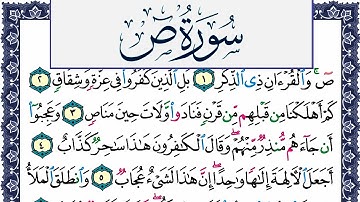 سُورَةُ صٓ
صٓۚ وَٱلْقُرْءَانِ ذِى ٱلذِّكْرِ ١ بَلِ ٱلَّذِينَ كَفَرُوا۟ فِى عِزَّةٍ وَشِقَاقٍ ٢
كَمْ أَهْلَكْنَا مِن قَبْلِهِم مِّن قَرْنٍ فَنَادَوا۟ وَّلَاتَ حِينَ مَنَاصٍ ٣ وَعَجِبُوٓا۟
أَن جَآءَهُم مُّنذِرٌ مِّنْهُمْ ۖ وَقَالَ ٱلْكَٰفِرُونَ هَٰذَا سَٰحِرٌ كَذَّابٌ ٤
أَجَعَلَ ٱلْءَالِهَةَ إِلَٰهًا وَٰحِدًا ۖ إِنَّ هَٰذَا لَشَىْءٌ عُجَابٌ ٥ وَٱنطَلَقَ ٱلْمَلَأُ